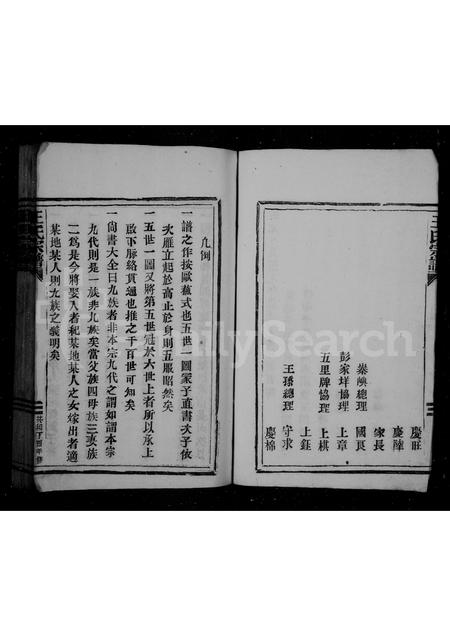 王氏宗譜
慶旺
慶陸
家長
國良
秦塽總理
上章
彭家垟協理
上棋
五里牌協理
上鈺
守求
王璓總理
慶棉
凡例
一譜之作按歐蘇式也五世一圖冢子直書次子依
次雁立起於高止於身則五服昭然矣
一五世一圖又將第五世冠於六世上者所以承上
啟下脈絡貫通也推之千百世可知矣
一尙書大全曰九族者非本宗九代之謂如謂本宗
九代則是一族非九族矣當父族四母族三妻族
二爲是今將娶入者紀某地某人之女嫁出者適
某地某人則九族之義明矣
王氏宗譜
FamilySearch